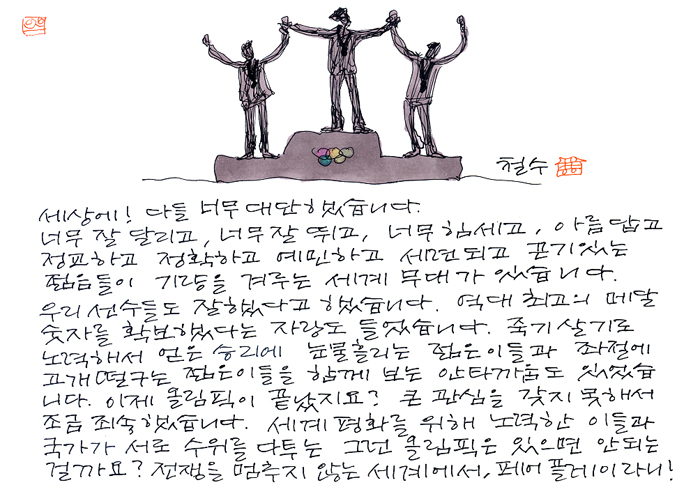 철수
세상에! 다들 너무 대단했습니다.
너무 잘 달리고, 너무 잘 뛰고, 너무 힘세고, 아름답고
정교하고 정확하고 예민하고 세련되고 끈기있는
젊음들이 기량을 겨루는 세계 무대가 있습니다.
우리 선수들도 잘했다고 했습니다. 역대 최고의 메달
숫자를 확보했다는 자랑도 들었습니다. 죽기 살기로
노력해서 얻은 승리에 눈물흘리는 젊은이들과 좌절에
고개떨구는 젊은이들을 함께 보는 안타까움도 있었습
니다. 이제 올림픽이 끝났지요? 큰 관심을 갖지 못해서
조금 죄송했습니다. 세계평화를 위해 노력한 이들과
국가가 서로 수위를 다투는 그런 올림픽은 있으면 안되는
걸까요? 전쟁을 멈추지 않는 세계에서, 페어플레이라니!